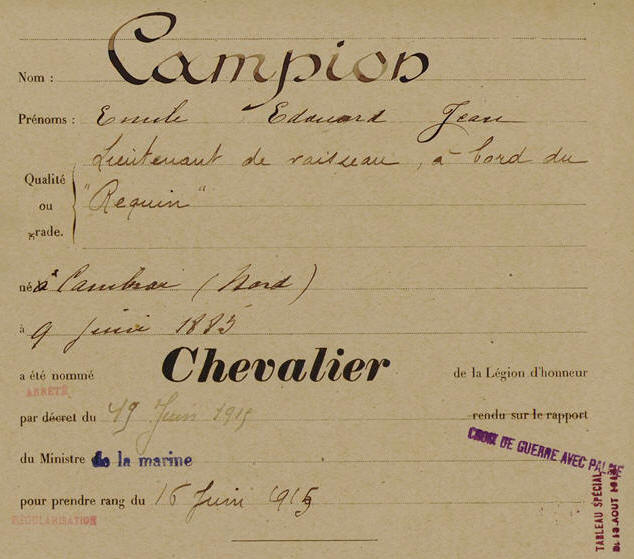 Nom : Campion
Prénoms : Emile Edouard Jean
Lieutenant de vaisseau, à bord du
Qualité
ou
grade.
"Requin"
né à Cambrai (Nord)
à 9 Juin 1883
a été nommé Chevalier de la Légion d'honneur
ARRÊTÉ
par décret du 19 Juin 1915 rendu sur le rapport
du Ministre de la marine
CROIX DE GUERRE AVEC PALME
pour prendre rang du 16 Juin 1915
RÉGULARISATION
TABLEAU SPÉCIAL